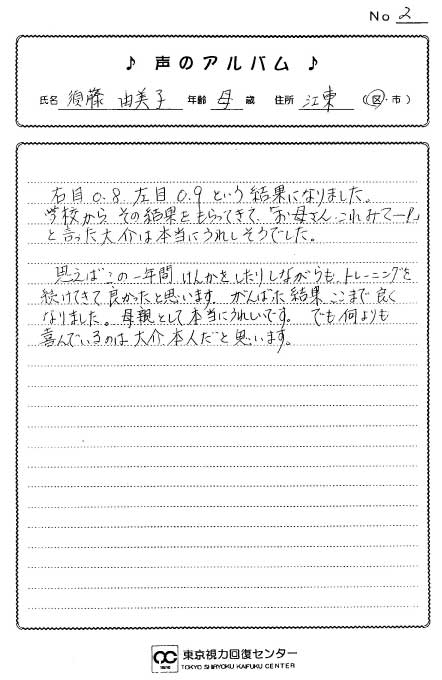 No 2
♪ 声のアルバム ♪
氏名 須藤 由美子 年齢 母 歳 住所 江東 (区・市)
右目 0.8 左目 0.9 という結果になりました。
学校から その結果をもらってきて、「お母さん これみてー!」
と言った大介は本当にうれしそうでした。
思えばこの一年間 けんかをしたりしながらも、トレーニングを
続けてきて 良かったと思います。がんばた結果 ここまで良く
なりました。母親として本当にうれしいです。でも何よりも
喜んでいるのは大介本人だと思います。
東京視力回復センター
TOKYO SHIRYOKU KAIFUKU CENTER